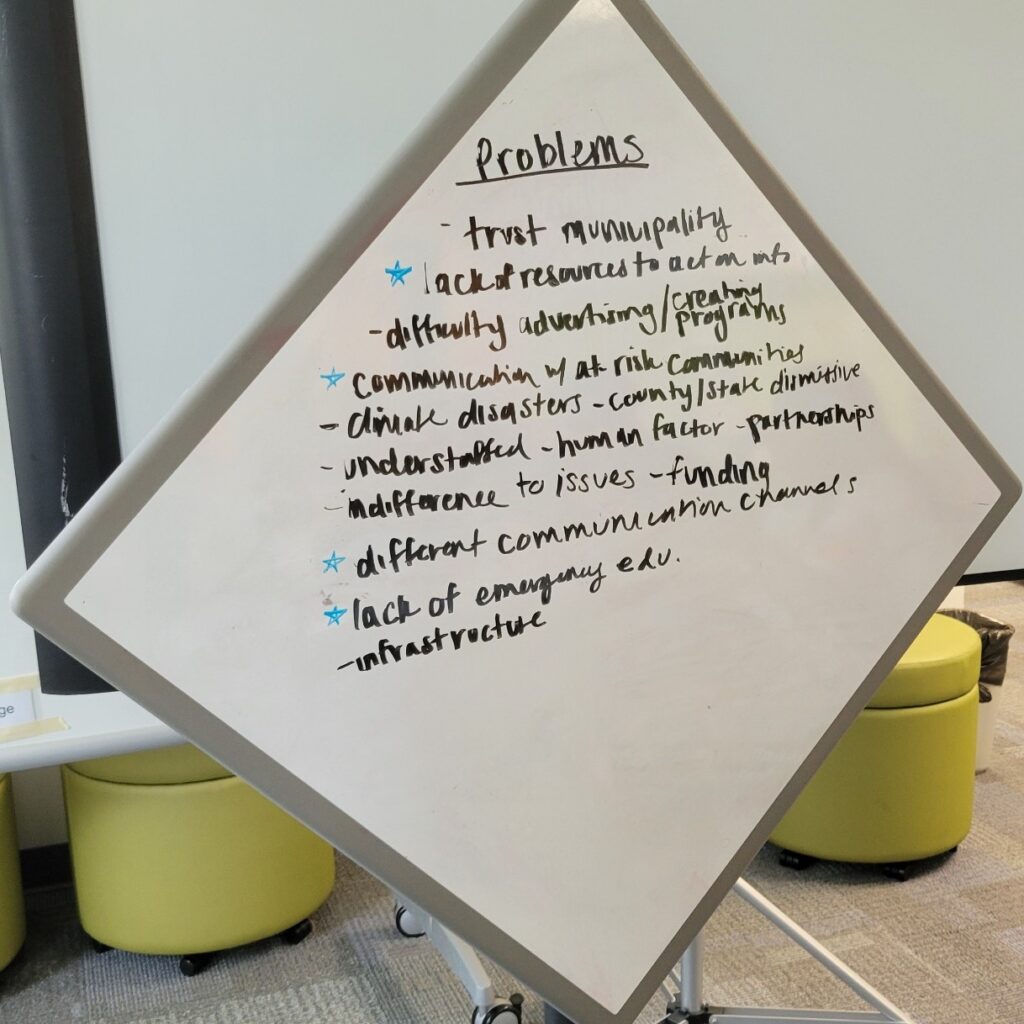 Problems
- trust municipality
lack of resources to act on info
- difficulty advertising/creating programs
communication w/ at risk communities
- climate disasters - county/state dismissive
- understaffed - human factor - partnerships
- indifference to issues - funding
different communication channels
lack of emergency edu.
- infrastructure
ge